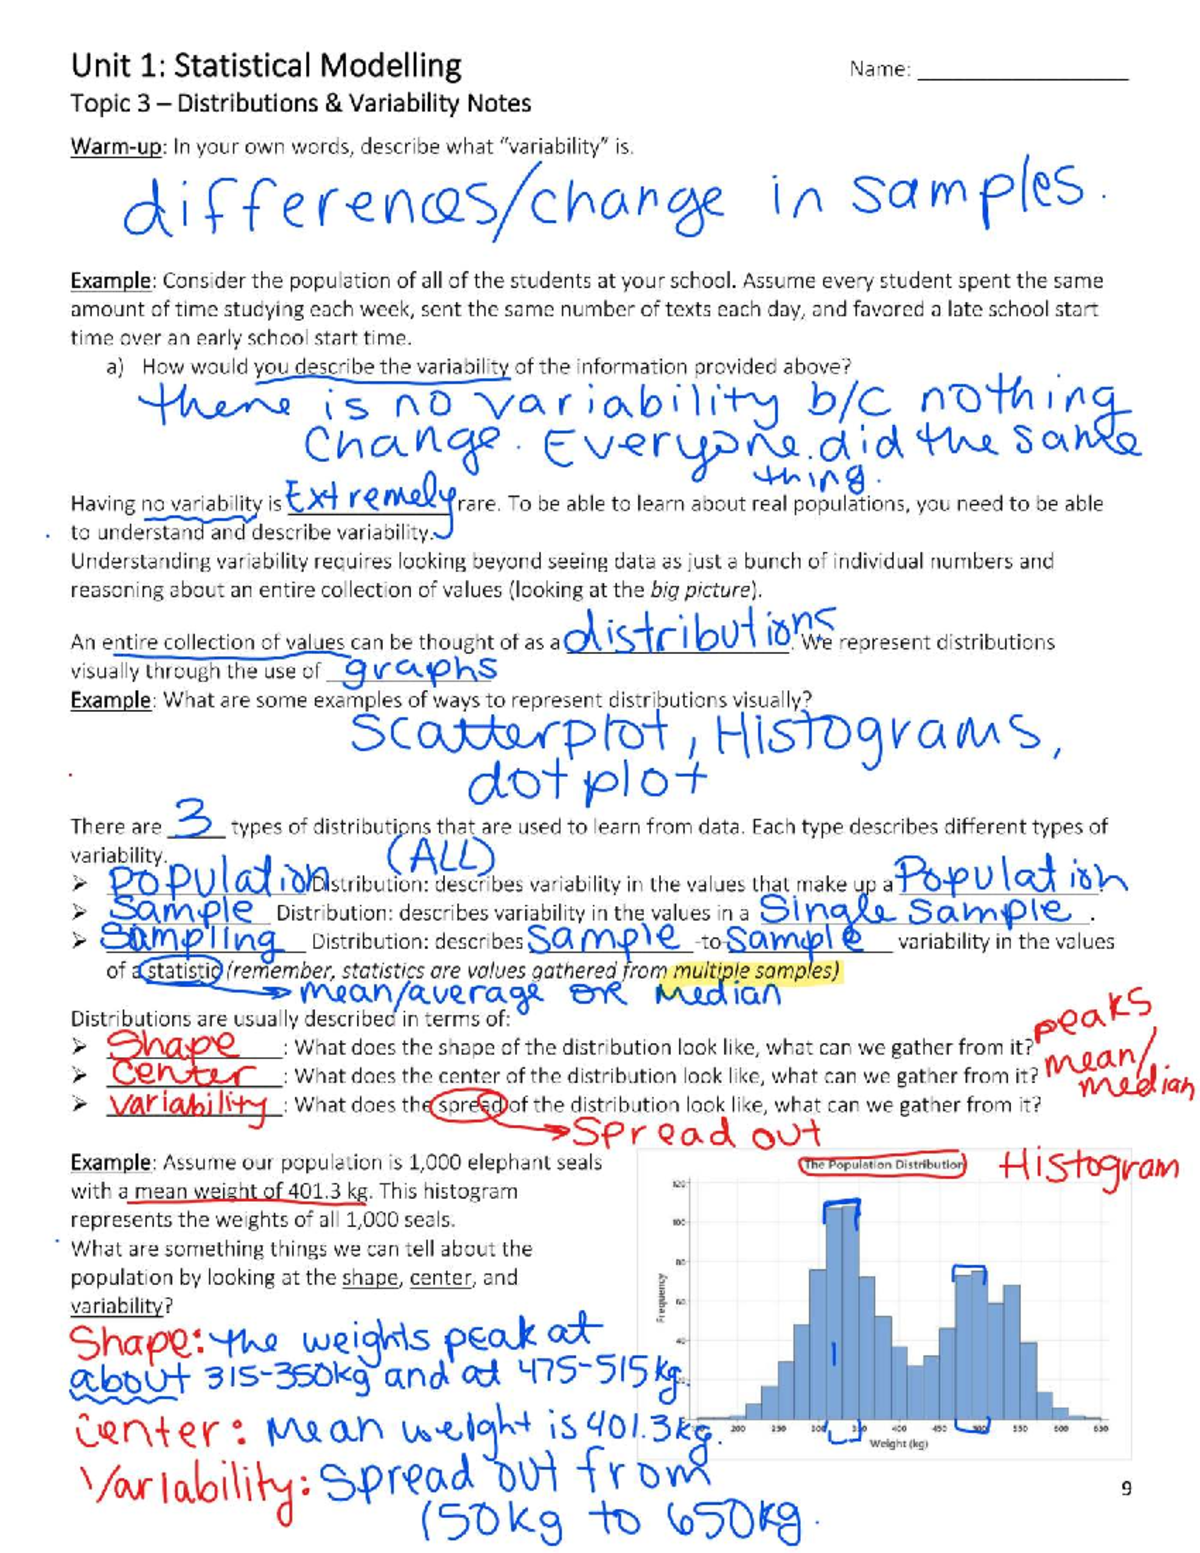 Unit 1: Statistical Modelling
Name:
Topic 3 – Distributions & Variability Notes
Warm-up: In your own words, describe what "variability" is.
differences/change in samples.
Example: Consider the population of all of the students at your school. Assume every student spent the same
amount of time studying each week, sent the same number of texts each day, and favored a late school start
time over an early school start time.
a) How would you describe the variability of the information provided above?
there is no variability b/c nothing
change. Everyone did the same
thing.
Having no variability is Extremely rare. To be able to learn about real populations, you need to be able
to understand and describe variability.
Understanding variability requires looking beyond seeing data as just a bunch of individual numbers and
reasoning about an entire collection of values (looking at the big picture).
An entire collection of values can be thought of as a distributions. We represent distributions
visually through the use of graphs
Example: What are some examples of ways to represent distributions visually?
Scatterplot, Histograms,
dotplot
There are 3 types of distributions that are used to learn from data. Each type describes different types of
variability.
(ALL)
➢ Population Distribution: describes variability in the values that make up a Population
➢ Sample Distribution: describes variability in the values in a Single Sample.
➢ Sampling Distribution: describes Sample-to-Sample variability in the values
of a statistic (remember, statistics are values gathered from multiple samples)
mean/average OR Median
Distributions are usually described in terms of:
➢ Shape: What does the shape of the distribution look like, what can we gather from it? peaks
➢ Center: What does the center of the distribution look like, what can we gather from it? mean/
median
➢ Variability: What does the spread of the distribution look like, what can we gather from it?
Spread out
Example: Assume our population is 1,000 elephant seals
with a mean weight of 401.3 kg. This histogram
represents the weights of all 1,000 seals.
What are something things we can tell about the
population by looking at the shape, center, and
variability?
The Population Distribution
Histogram
Frequency
120
100
80
60
40
200 250 300 350 400 450 500 550 600 650
Weight (kg)
Shape: the weights peak at
about 315-350kg and at 475-515kg.
Center: Mean weight is 401.3kg.
Variability: Spread out from
150kg to 650kg.
9